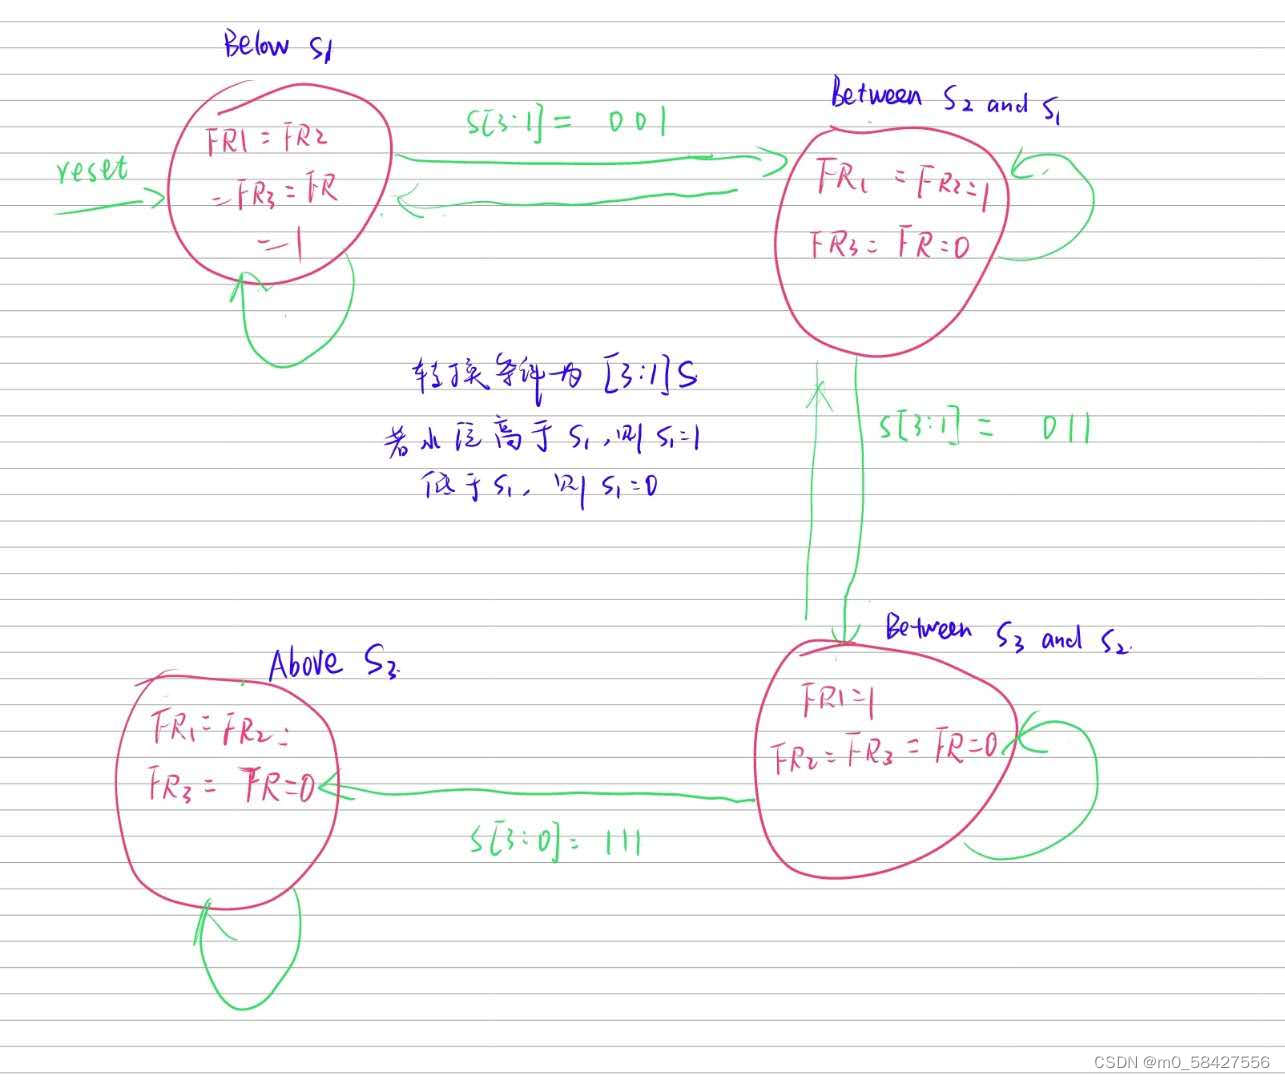 Below S1
FR1 = FR2
= FR3 = FR
= 1
reset
S[3:1] = 001
Between S2 and S1
FR1 = FR2=1
FR3= FR=0
转换条件为 [3:1]S
若水位高于 S1,则 S1=1
低于 S1, 则 S1=0
S[3:1] = 011
Between S3 and S2.
FR1=1
FR2= FR3 = FR=0
Above S3.
FR1= FR2=
FR3= FR=0
S[3:0]= 111
CSDN @m0_58427556